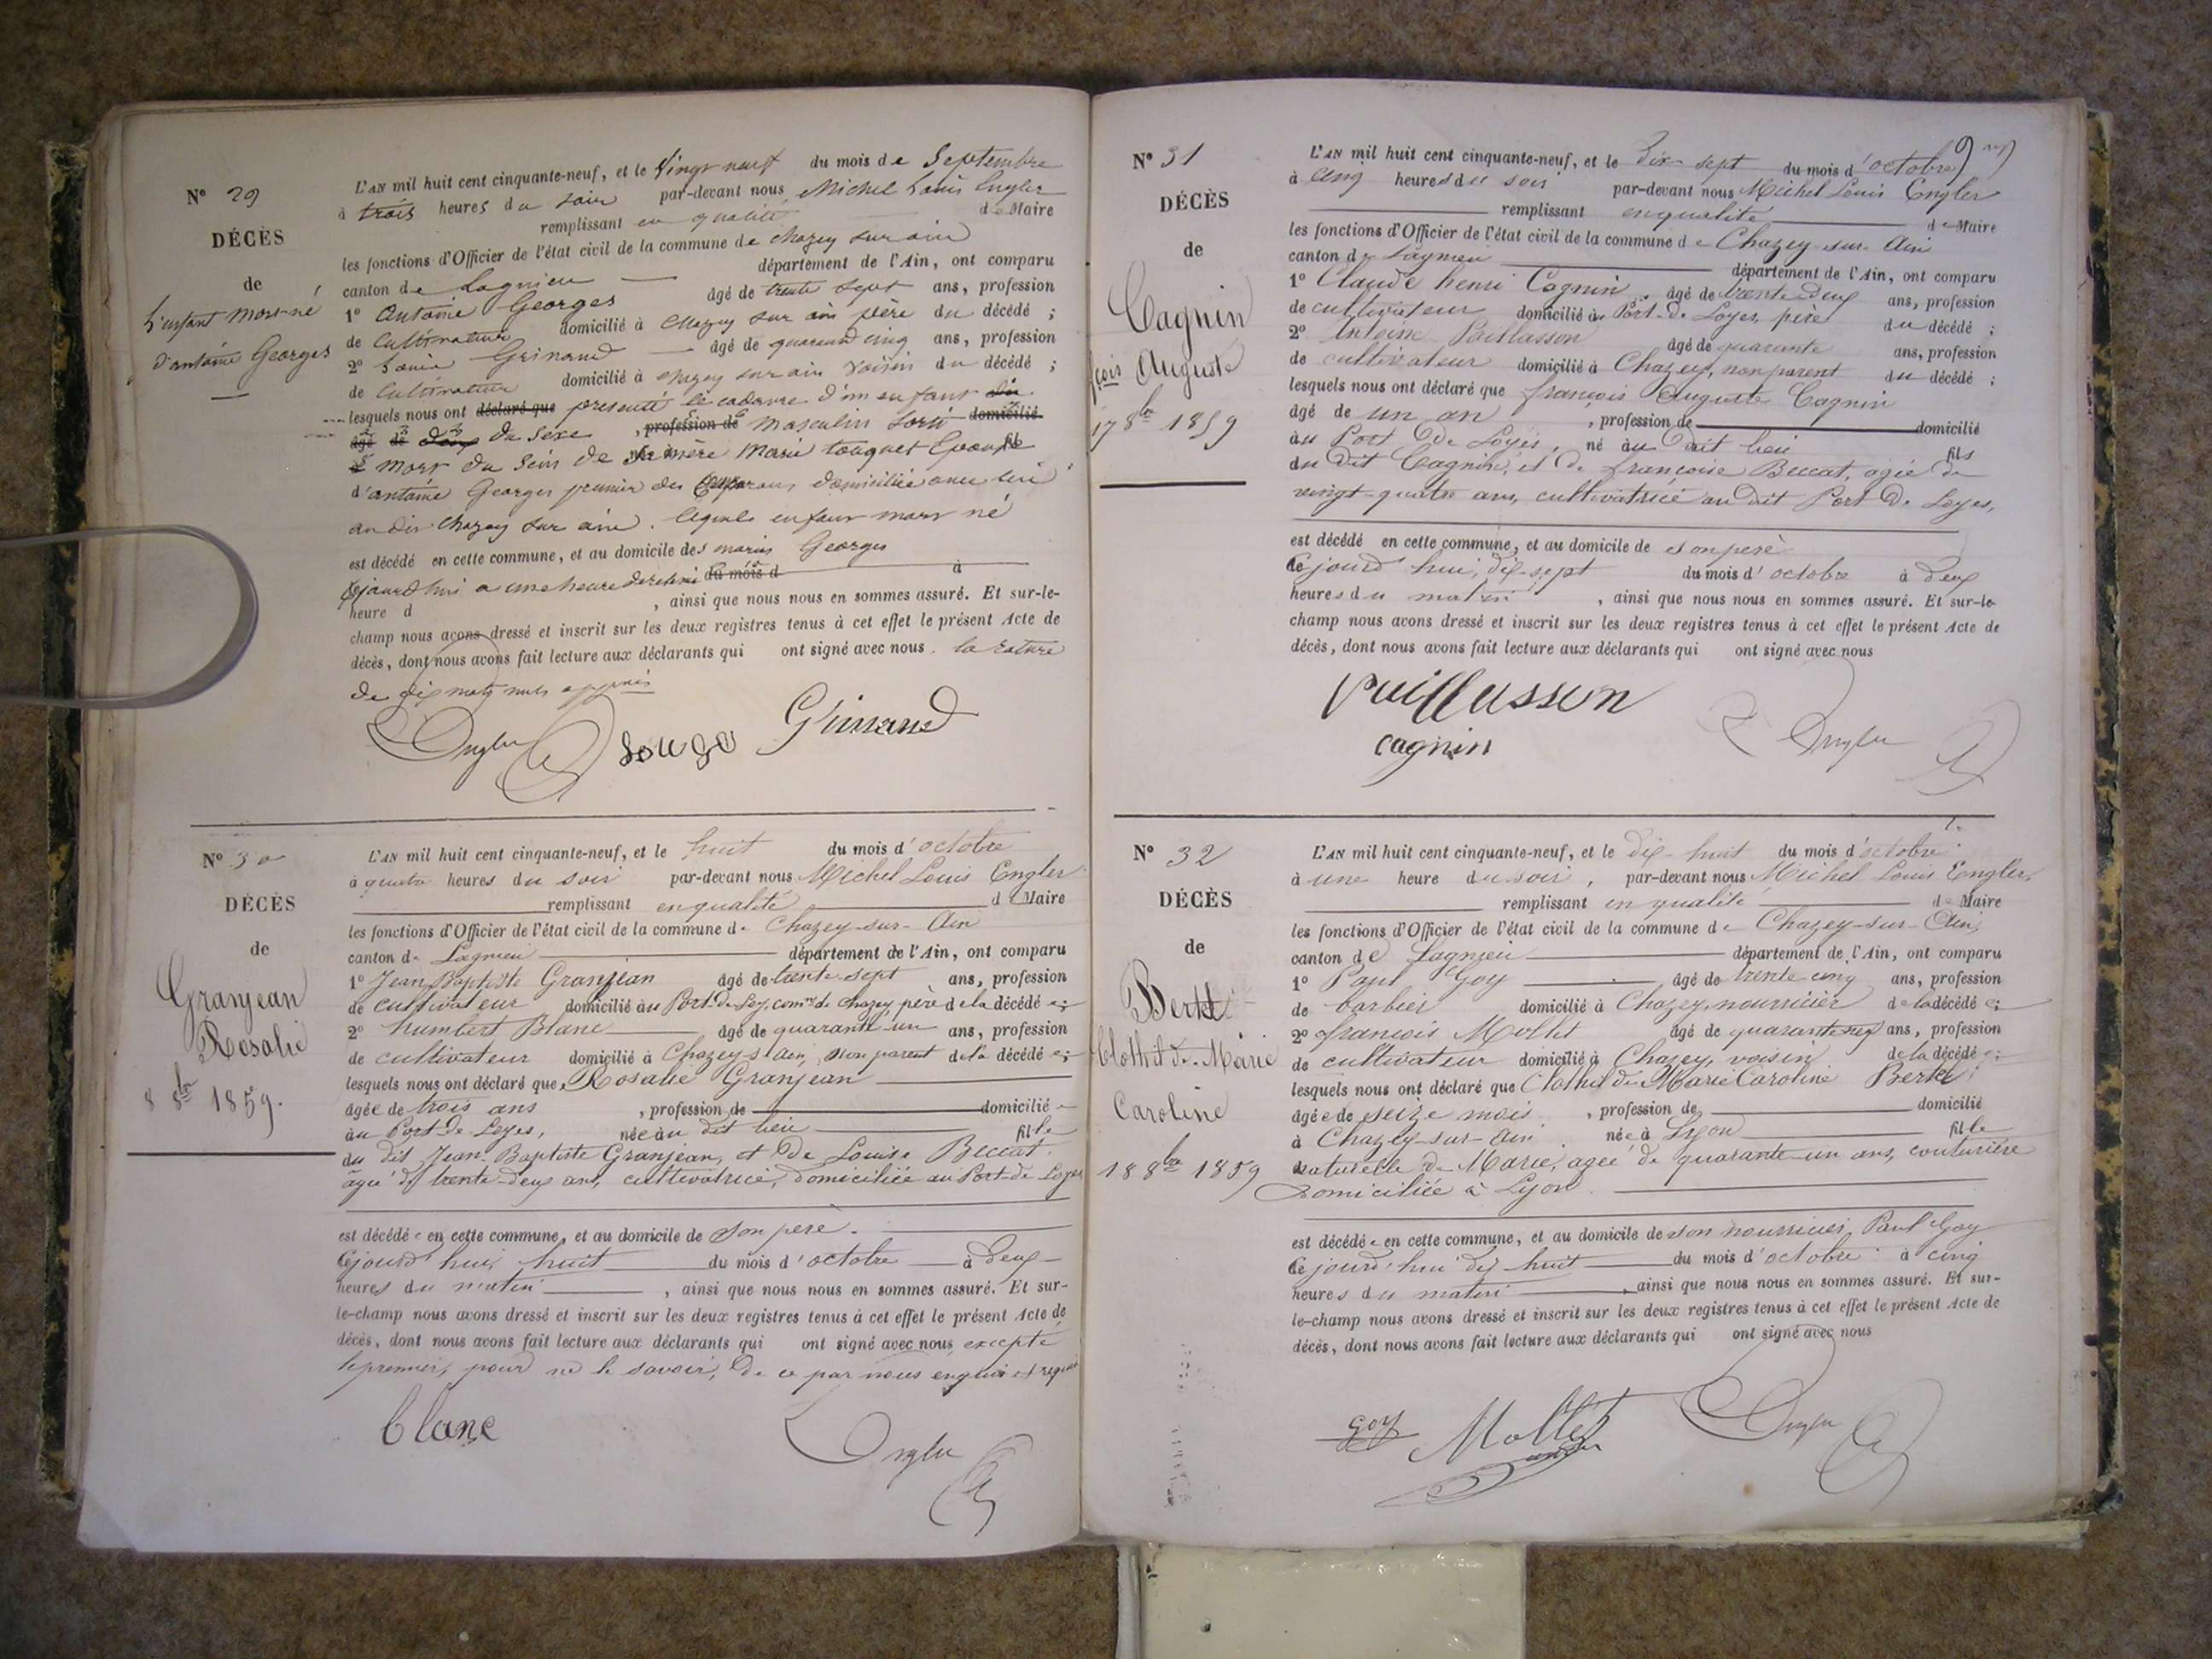 N° 29
DÉCÈS
de
L'enfant mort-né
d'antoine Georges
L'AN mil huit cent cinquante-neuf, et le Vingt neuf du mois de Septembre
à trois heures du soir par-devant nous Michel Louis Engler
remplissant en qualité de Maire
les fonctions d'Officier de l'état civil de la commune de chazey sur ain
canton de Lagnieu département de l'Ain, ont comparu
1° Antoine Georges âgé de trente sept ans, profession
de Cultivateur domicilié à chazey sur ain père du décédé ;
2° Louis Grinand âgé de quarante cinq ans, profession
de Cultivateur domicilié à chazey sur ain voisin du décédé ;
lesquels nous ont déclaré que présenté le cadavre d'un enfant
âgé de du sexe profession de masculin sorti domicilié
mort du sein de sa mère Marie touquet Epouse
d'antoine Georges premier des comparans domiciliée avec lui
au dit chazey sur ain. lequel enfant mort né
est décédé en cette commune, et au domicile des mariés Georges
Cejourd'hui a une heure du mois d à
heure d , ainsi que nous nous en sommes assuré. Et sur-le-
champ nous avons dressé et inscrit sur les deux registres tenus à cet effet le présent Acte de
décès, dont nous avons fait lecture aux déclarants qui ont signé avec nous. la rature
de dix mots nuls
Engler Grinand
N° 30
DÉCÈS
de
Granjean
Rosalie
8 8bre 1859.
L'AN mil huit cent cinquante-neuf, et le huit du mois d'octobre
à quatre heures du soir par-devant nous Michel Louis Engler
remplissant en qualité de Maire
les fonctions d'Officier de l'état civil de la commune de Chazey-sur-Ain
canton de Lagnieu département de l'Ain, ont comparu
1° Jean Baptiste Granjean âgé de trente-sept ans, profession
de cultivateur domicilié au Port-de-Loy, comne de chazey, père de la décédée ;
2° humbert Blanc âgé de quarante-un ans, profession
de cultivateur domicilié à Chazey-s-ain, non parent de la décédée ;
lesquels nous ont déclaré que Rosalie Granjean
âgée de trois ans , profession de domiciliée
au Port-de-Loyes, née au dit lieu fille
du dit Jean-Baptiste Granjean, et de Louise Beccat,
âgée de trente-deux ans, cultivatrice, domiciliée au Port-de-Loyes
est décédée en cette commune, et au domicile de son père.
Cejourd'hui, huit du mois d'octobre à deux
heures du matin , ainsi que nous nous en sommes assuré. Et sur-
le-champ nous avons dressé et inscrit sur les deux registres tenus à cet effet le présent Acte de
décès, dont nous avons fait lecture aux déclarants qui ont signé avec nous, excepté
le premier, pour ne le savoir, de ce par nous enquis et requis
blanc Engler
N° 31
DÉCÈS
de
Cagnin
fçois Auguste
17 8bre 1859
L'AN mil huit cent cinquante-neuf, et le Dix-sept du mois d'octobre
à cinq heures du soir par-devant nous Michel Louis Engler
remplissant en qualité de Maire
les fonctions d'Officier de l'état civil de la commune de Chazey-sur-Ain
canton de Lagnieu département de l'Ain, ont comparu
1° Claude henri Cagnin âgé de trente-deux ans, profession
de cultivateur domicilié au Port-de-Loyes, père du décédé ;
2° Antoine Paillasson âgé de quarante ans, profession
de cultivateur domicilié à Chazey, non parent du décédé ;
lesquels nous ont déclaré que françois Auguste Cagnin
âgé de un an , profession de domicilié
au Port de Loyes, né au dit lieu fils
du dit Cagnin, et de françoise Beccat, agée de
vingt-quatre ans, cultivatrice au dit Port-de-Loyes,
est décédé en cette commune, et au domicile de son père
Cejourd'hui, dix-sept du mois d'octobre à deux
heures du matin , ainsi que nous nous en sommes assuré. Et sur-le-
champ nous avons dressé et inscrit sur les deux registres tenus à cet effet le présent Acte de
décès, dont nous avons fait lecture aux déclarants qui ont signé avec nous
paillasson
cagnin Engler
N° 32
DÉCÈS
de
Clothilde-Marie
Caroline
18 8bre 1859
L'AN mil huit cent cinquante-neuf, et le dix-huit du mois d'octobre
à une heure du soir, par-devant nous Michel Louis Engler,
remplissant en qualité de Maire
les fonctions d'Officier de l'état civil de la commune de Chazey-sur-Ain,
canton de Lagnieu département de l'Ain, ont comparu
1° Paul Goy âgé de trente-cinq ans, profession
de barbier domicilié à Chazey, nourricier de la décédée ;
2° françois Mollet âgé de quarante-neuf ans, profession
de cultivateur domicilié à Chazey, voisin de la décédée ;
lesquels nous ont déclaré que Clothilde Marie Caroline
âgée de seize mois , profession de domicilié
à Chazey-sur-Ain née à Lyon fille
naturelle de Marie, agée de quarante-un ans, couturière
domiciliée à Lyon
est décédée en cette commune, et au domicile de son nourricier, Paul Goy
Cejourd'hui dix-huit du mois d'octobre à cinq
heures du matin , ainsi que nous nous en sommes assuré. Et sur-
le-champ nous avons dressé et inscrit sur les deux registres tenus à cet effet le présent Acte de
décès, dont nous avons fait lecture aux déclarants qui ont signé avec nous
goy Mollet Engler